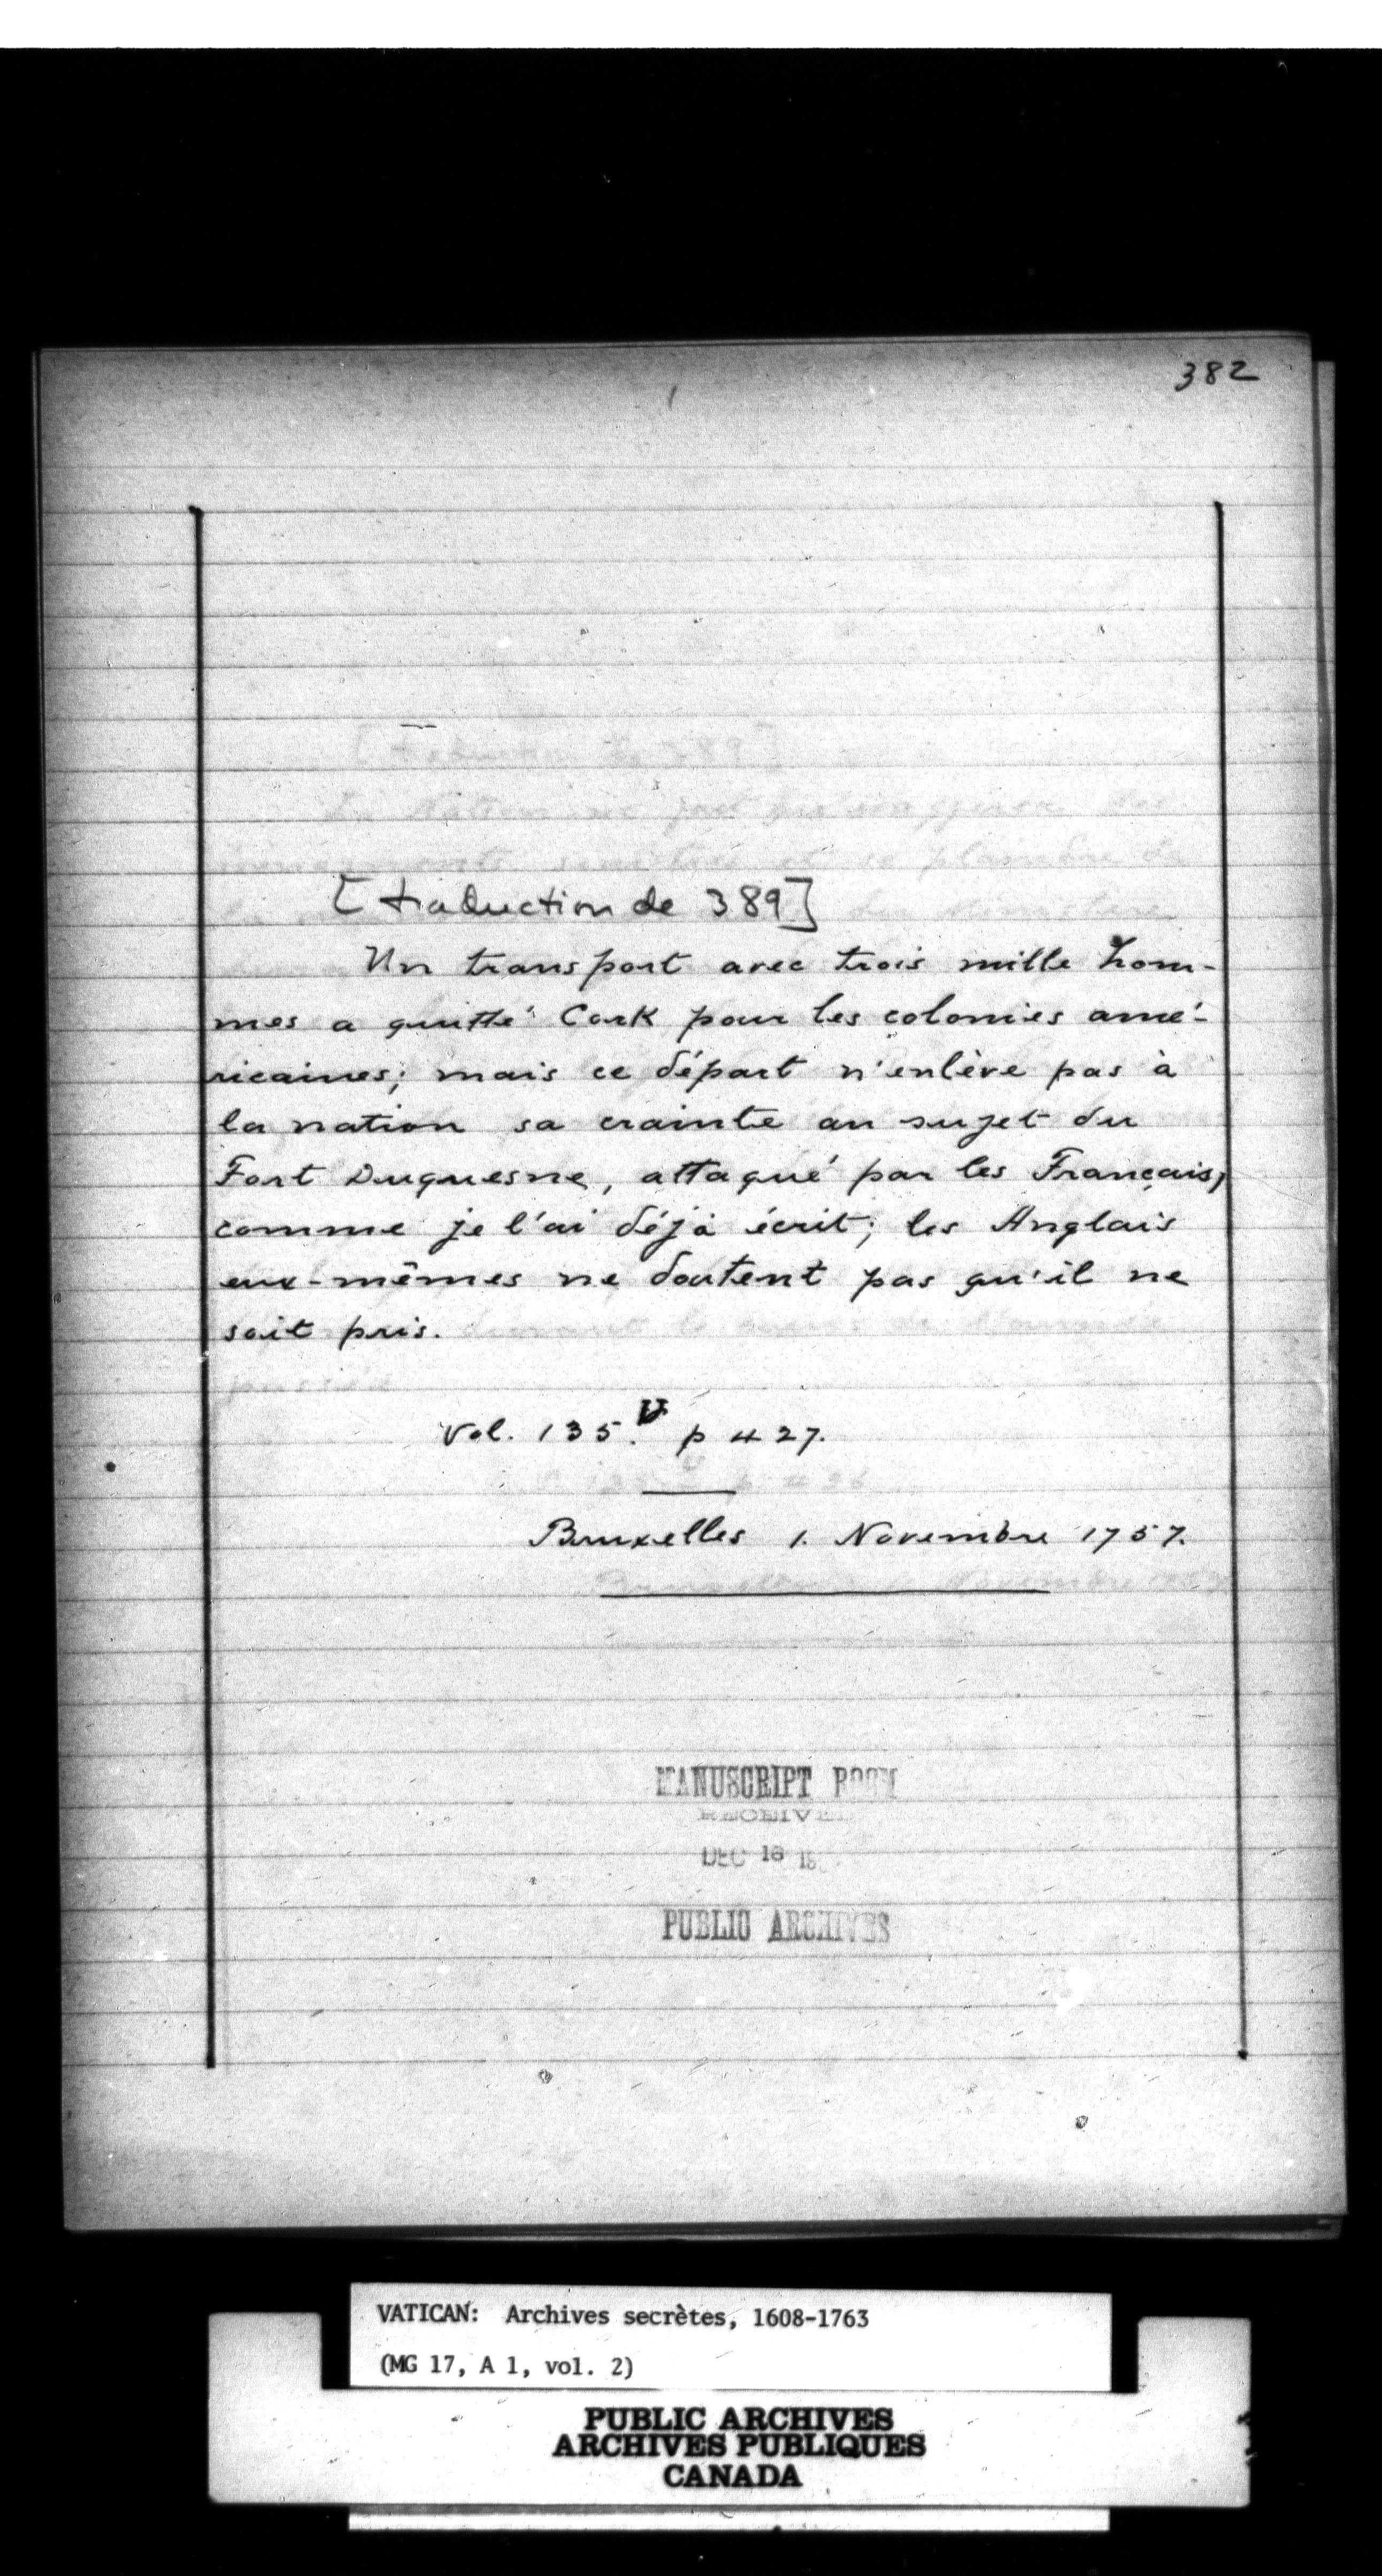 382
[traduction de 389]
Un transport avec trois mille hom-
mes a quitté Cork pour les colonies amé-
ricaines; mais ce départ n'enlève pas à
la nation sa crainte au sujet du
Fort Duquesne, attaqué par les Français,
comme je l'ai déjà écrit; les Anglais
eux-mêmes ne doutent pas qu'il ne
soit pris.
Vol. 135. V p 427.
Bruxelles 1. Novembre 1757.
MANUSCRIPT ROOM
RECEIVED
DEC 18
PUBLIC ARCHIVES
VATICAN: Archives secrètes, 1608-1763
(MG 17, A 1, vol. 2)
PUBLIC ARCHIVES
ARCHIVES PUBLIQUES
CANADA